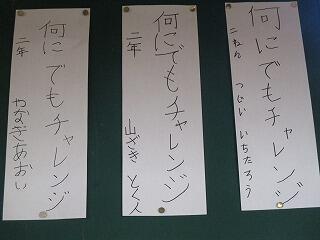 何にでもチャレンジ
二ねん
つじい いちたろう
何にでもチャレンジ
二年
山ざき とく人
何にでもチャレンジ
二年
やなぎ あおい